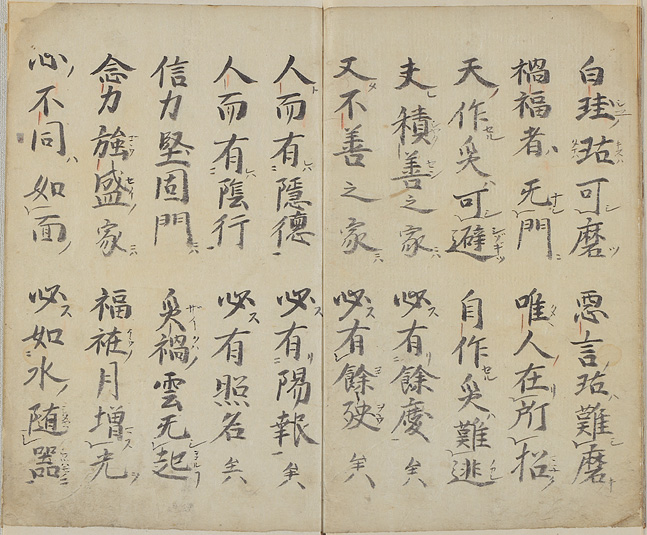 白珪玷可磨　惡言玷難磨
禍福者无門　唯人在所招
天作災可避　自作災難逃
夫積善之家　必有餘慶矣
又不善之家　必有餘殃矣
人而有隱德　必有陽報矣
人而有陰行　必有照名矣
信力堅固門　災禍雲无起
念力強盛家　福祐月增光
心不同如面　必如水随器